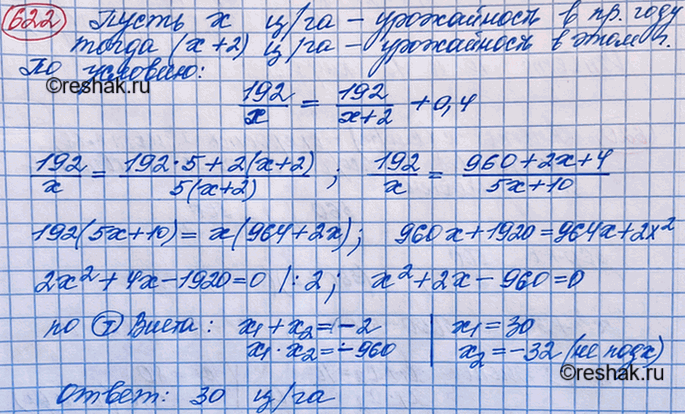 622 Пусть x ц/га – урожайность в пр. году
тогда (x+2) ц/га – урожайность в этом г.
По условию:
©reshak.ru
192/x = 192/(x+2) + 0,4
192/x = (192·5+2(x+2))/(5(x+2)) ; 192/x = (960+2x+4)/(5x+10)
192(5x+10) = x(964+2x); 960x+1920=964x+2x²
2x²+4x-1920=0 |:2; x²+2x-960=0
по Т Виета: x₁+x₂=-2 | x₁=30
x₁·x₂=-960 | x₂=-32 (не подх)
Ответ: 30 ц/га
©reshak.ru